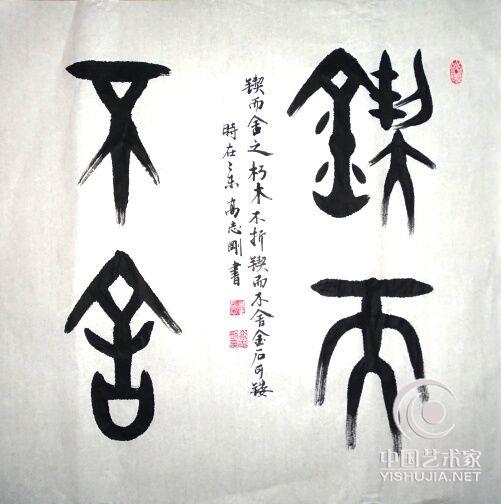 鍥而
不舍
锲而舍之朽木不折锲而不舍金石可镂
時在 高志剛書
中国艺术家
YISHUJIA.NET